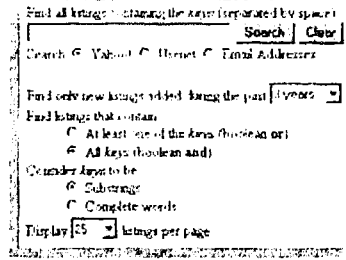 Find all listings containing the keys (separated by space)
Search Clear
Search Yahoo! Usenet Email Addresses
Find only new listings added during the past 3 years
Find listings that contain
At least one of the keys (boolean or)
All keys (boolean and)
Consider keys to be
Substrings
Complete words
Display 25 listings per page